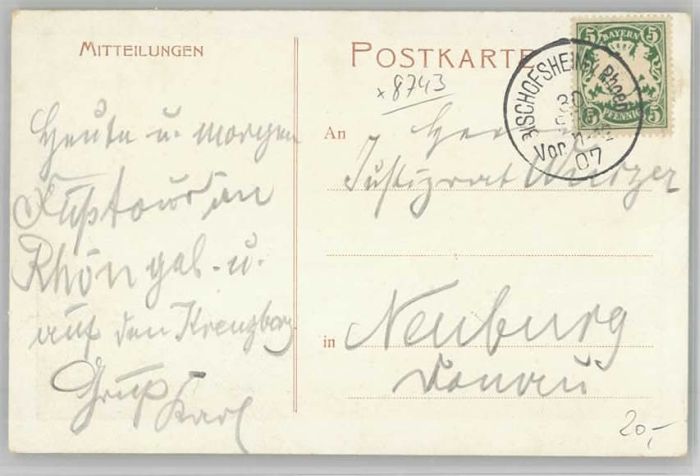 MITTEILUNGEN
Heute u. morgen
Fußtour in
Rhön geb. u.
auf den Kreuzberg
Gruß Karl
POSTKARTE
x 8743
An Herrn
Justizrat Wurzer
in Neuburg
Donau
5 BAYERN 5
5 PFENNIG 5
BISCHOFSHEIM Rhoen
30
Vor
07
20,-